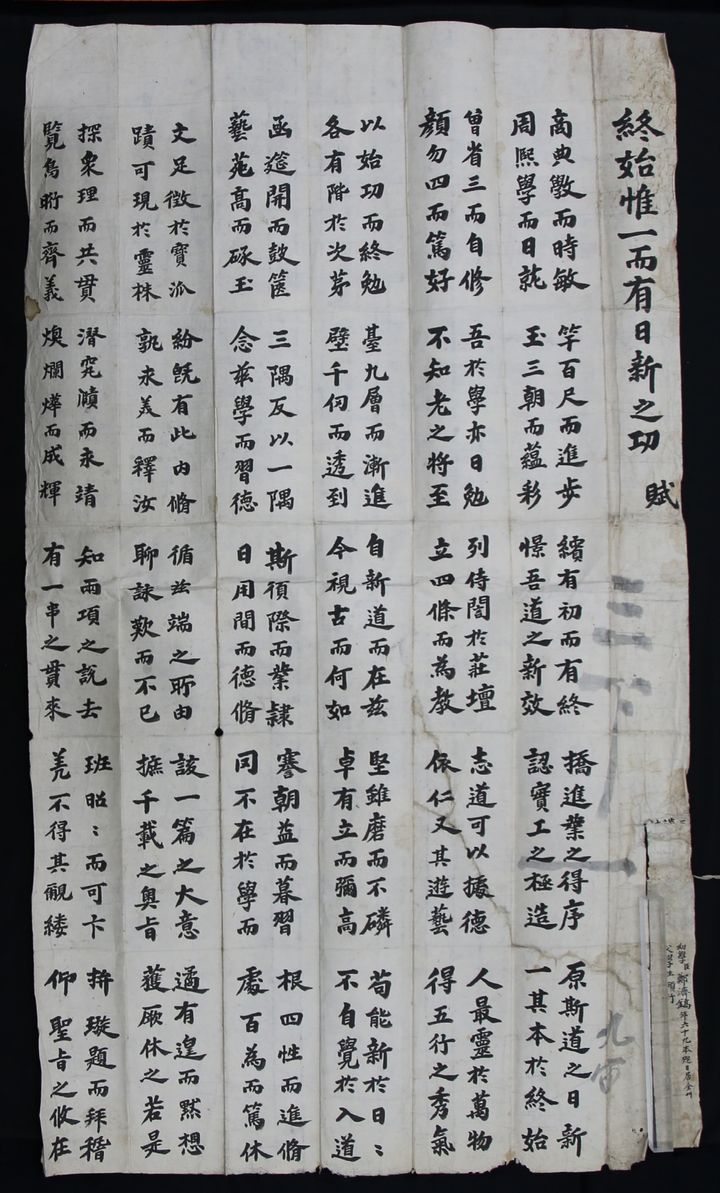 終始惟一而有日新之功 賦
高典斅而時敏
周熙學而日就
竿百尺而進步
玉三朝而蘊彩
繽有初而有終
憬吾道之新效
撟進業之得序
認實工之極造
原斯道之日新
一其本於終始
曾省三而自修
顏勿四而篤好
吾於學亦日勉
不知老之將至
列侍誾於莊壇
立四條而為教
志道可以據德
依仁又其遊藝
人最靈於萬物
得五行之秀氣
以始功而終勉
各有階於次第
臺九層而漸進
壁千仞而透到
自新道而在玆
今視古而何如
堅雖磨而不磷
卓有立而彌高
苟能新於日〻
不自覺於入道
函筵開而鼓篋
藝苑高而琢玉
三隅反以一隅
念玆學而習德
斯須際而業隷
日用間而德脩
謇朝益而暮習
罔不在於學而
根四性而進脩
處百為而篤休
文足徵於寶派
蹟可現於靈株
紛旣有此內脩
孰求美而釋汝
循玆端之所由
聊詠歎而不已
該一篇之大意
摭千載之奧旨
遹有遑而默想
蒦厥休之若是
探衆理而共貫
覽雋晣而齊義
潛究賾而永靖
煥爛燁而成輝
知兩項之說去
有一串之貫來
班昭〻而可卞
羌不得其覼縷
拚璇題而拜稽
仰 聖旨之攸在
三下